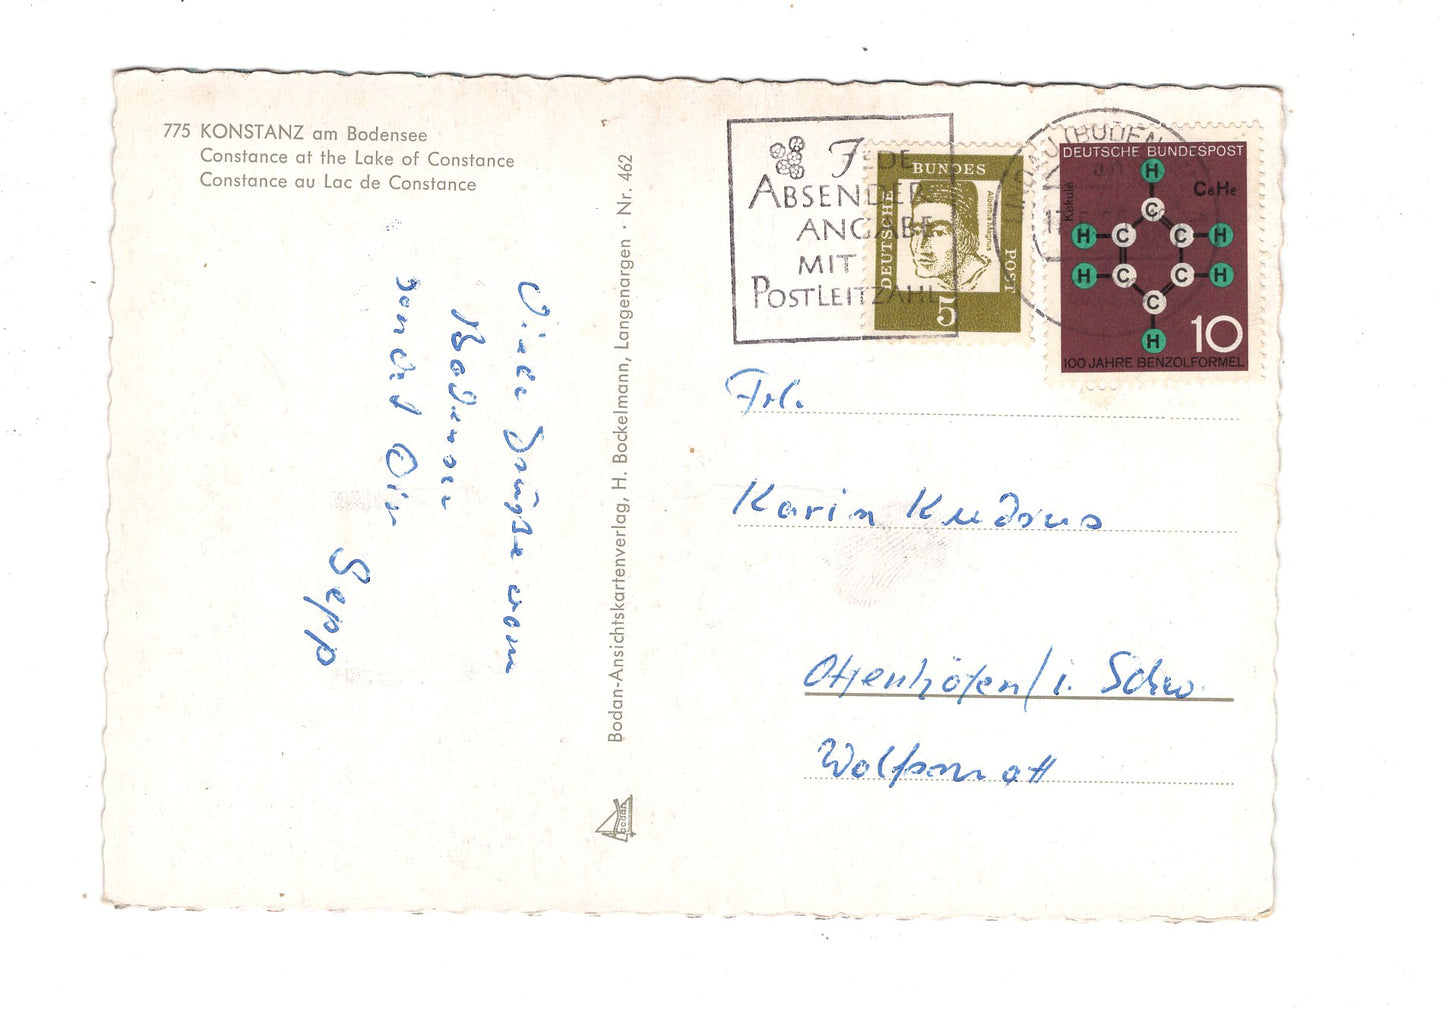 775 KONSTANZ am Bodensee
Constance at the Lake of Constance
Constance au Lac de Constance
Viele Grüße vom
Bodensee
sendet Dir
Sepp
Bodan-Ansichtskartenverlag, H. Bockelmann, Langenargen · Nr. 462
bodan
JEDE
ABSENDER
ANGABE
MIT
POSTLEITZAHL
DEUTSCHE
BUNDES
POST
Albertus Magnus
5
LINDAU (BODEN
DEUTSCHE BUNDESPOST
Kekulé
C₆H₆
H
C
H C C H
H C C H
C
H
10
100 JAHRE BENZOLFORMEL
Frl.
Karin
Ottenhöfen/i. Schw.
Wolfsmatt